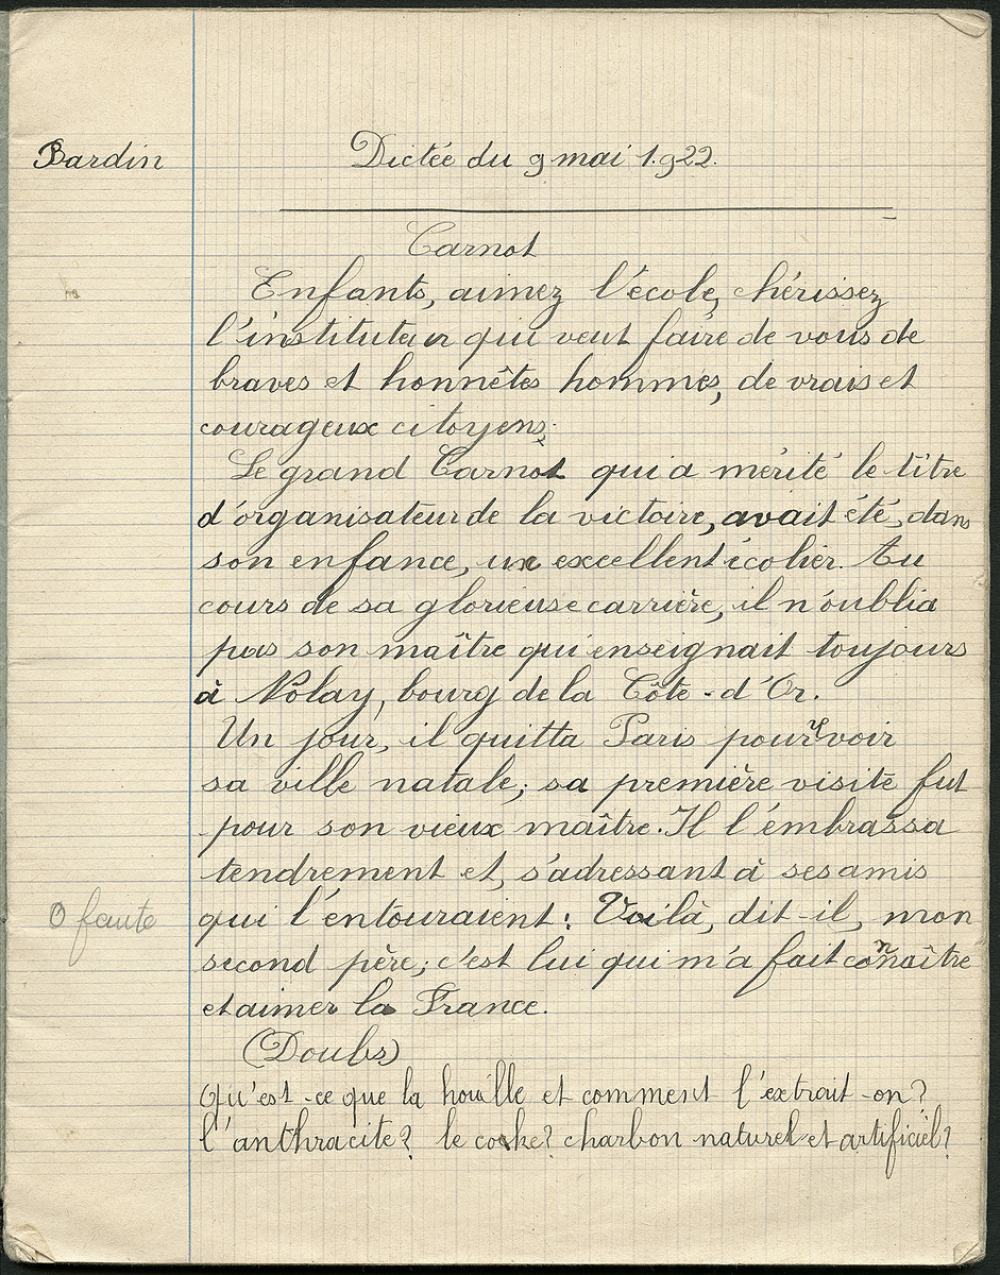 Bardin
Dictée du 9 mai 1922.
Carnot
Enfants, aimez l'école, chérissez
l'instituteur qui veut faire de vous de
braves et honnêtes hommes, de vrais et
courageux citoyens.
Le grand Carnot qui a mérité le titre
d'organisateur de la victoire, avait été, dans
son enfance, un excellent écolier. Au
cours de sa glorieuse carrière, il n'oublia
pas son maître qui enseignait toujours
à Nolay, bourg de la Côte-d'Or.
Un jour, il quitta Paris pour revoir
sa ville natale; sa première visite fut
pour son vieux maître. Il l'embrassa
tendrement et, s'adressant à ses amis
0 faute
qui l'entouraient: Voilà, dit-il, mon
second père; c'est lui qui m'a fait connaître
et aimer la France.
(Doubs)
Qu'est-ce que la houille et comment l'extrait-on?
l'anthracite? le coke? charbon naturel et artificiel?